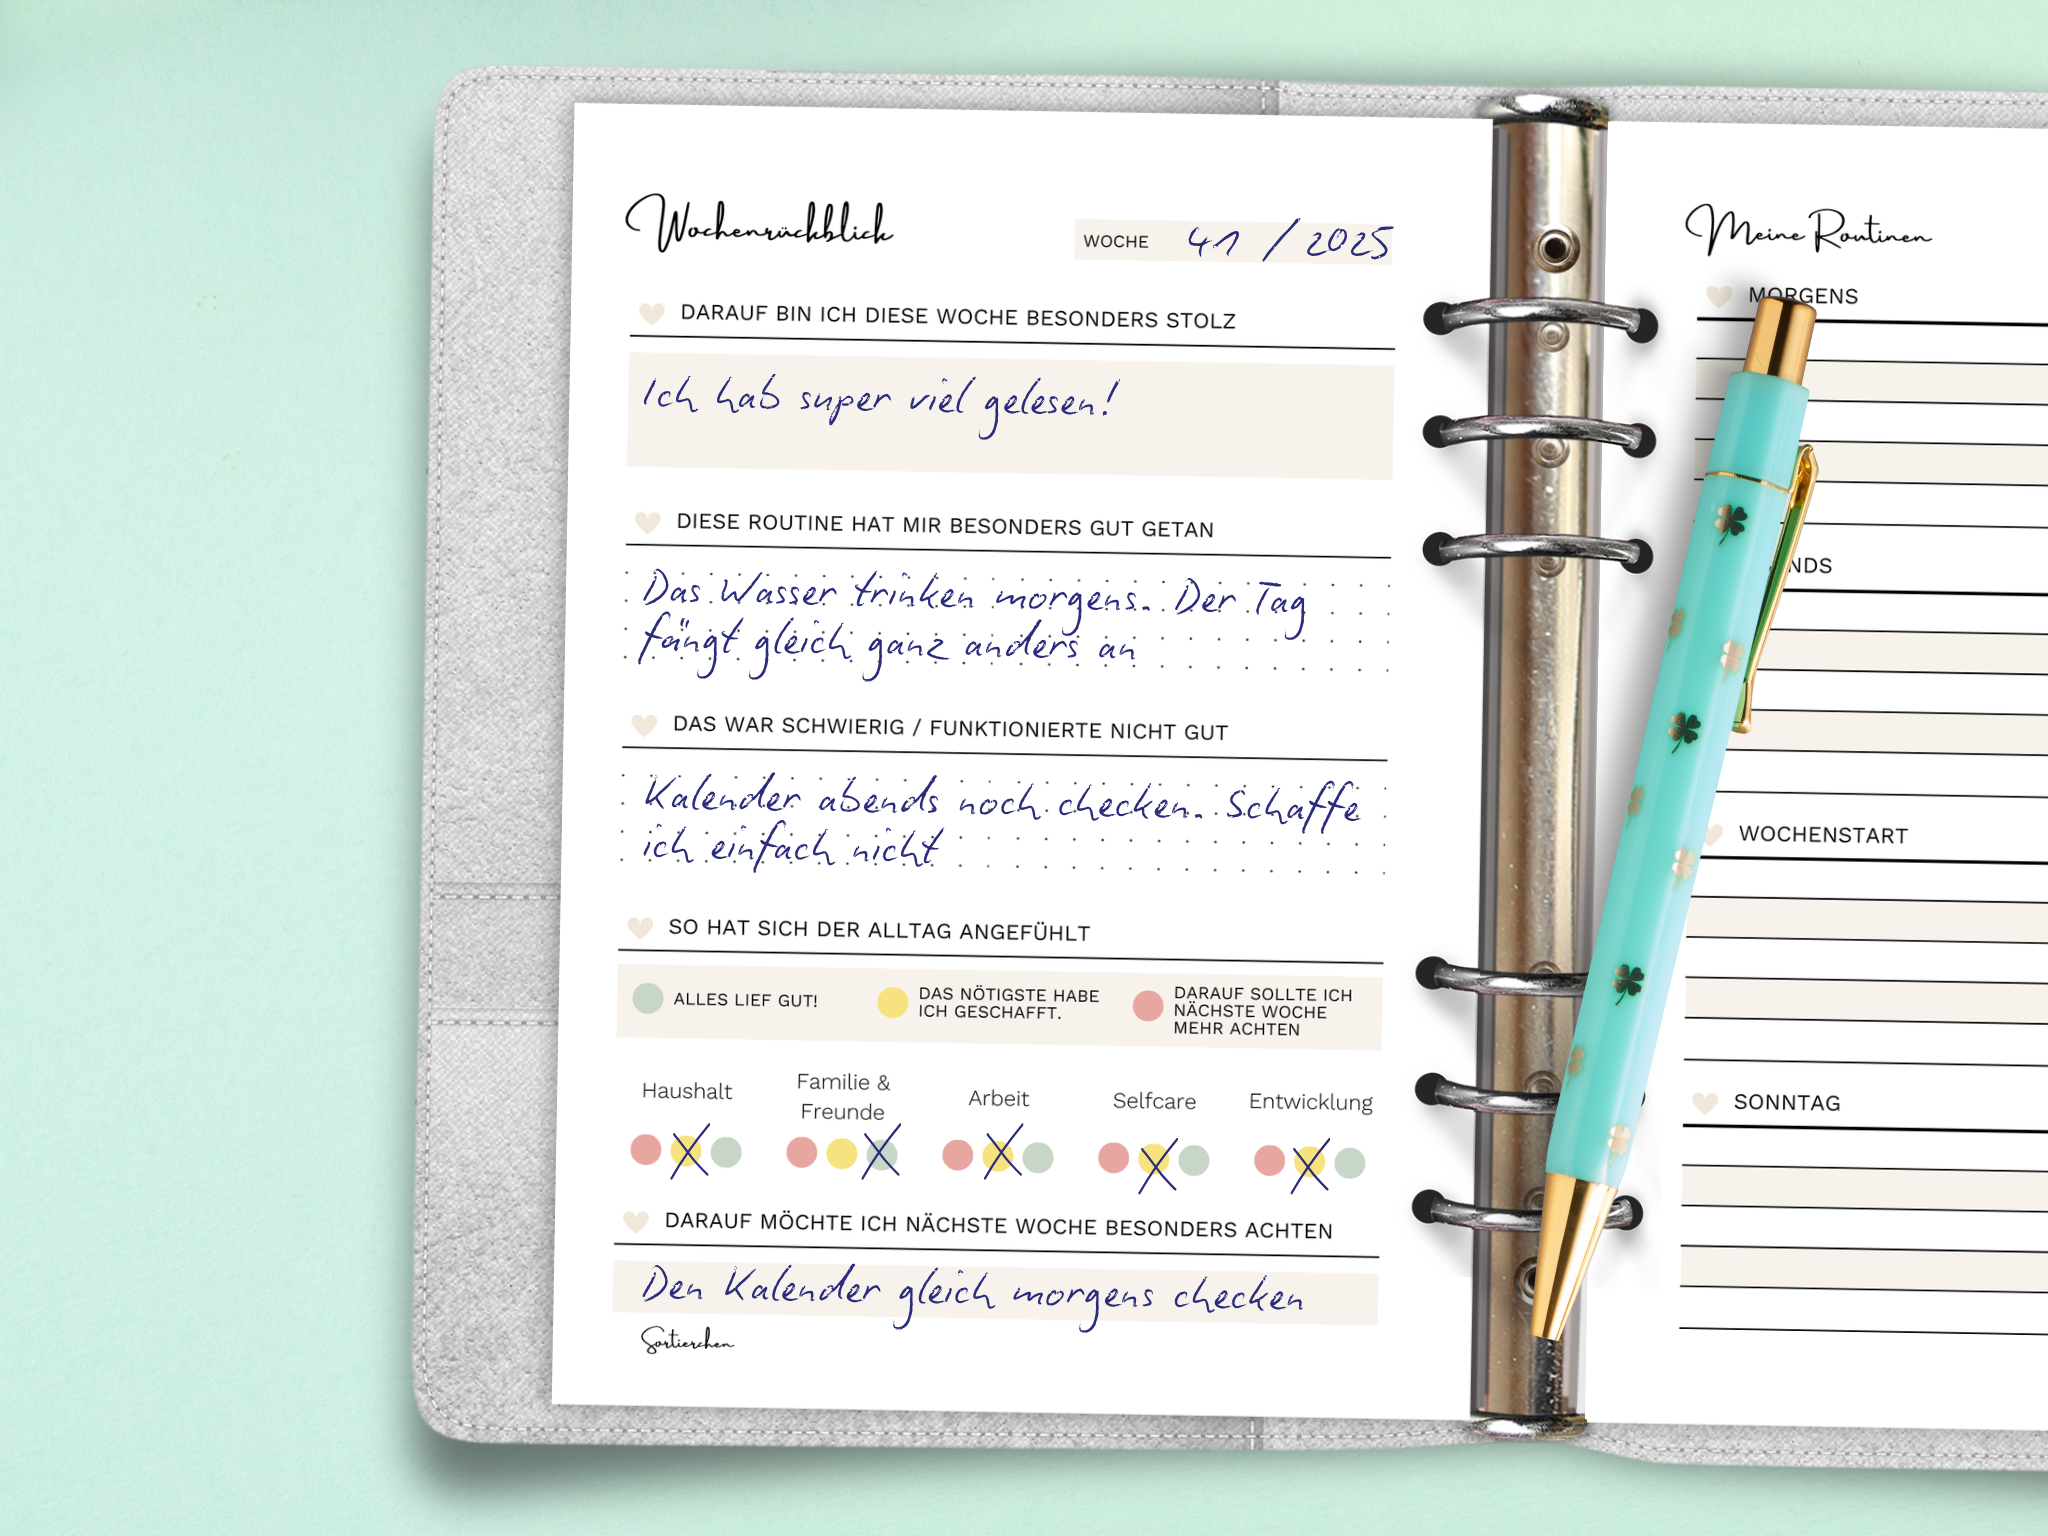 Wochenrückblick
WOCHE 41 / 2025
DARAUF BIN ICH DIESE WOCHE BESONDERS STOLZ
Ich hab super viel gelesen!
DIESE ROUTINE HAT MIR BESONDERS GUT GETAN
Das Wasser trinken morgens. Der Tag
fängt gleich ganz anders an
DAS WAR SCHWIERIG / FUNKTIONIERTE NICHT GUT
Kalender abends noch checken. Schaffe
ich einfach nicht
SO HAT SICH DER ALLTAG ANGEFÜHLT
ALLES LIEF GUT!
DAS NÖTIGSTE HABE
ICH GESCHAFFT.
DARAUF SOLLTE ICH
NÄCHSTE WOCHE
MEHR ACHTEN
Haushalt
Familie &
Freunde
Arbeit
Selfcare
Entwicklung
DARAUF MÖCHTE ICH NÄCHSTE WOCHE BESONDERS ACHTEN
Den Kalender gleich morgens checken
Sortierchen
Meine Routinen
MORGENS
NDS
WOCHENSTART
SONNTAG